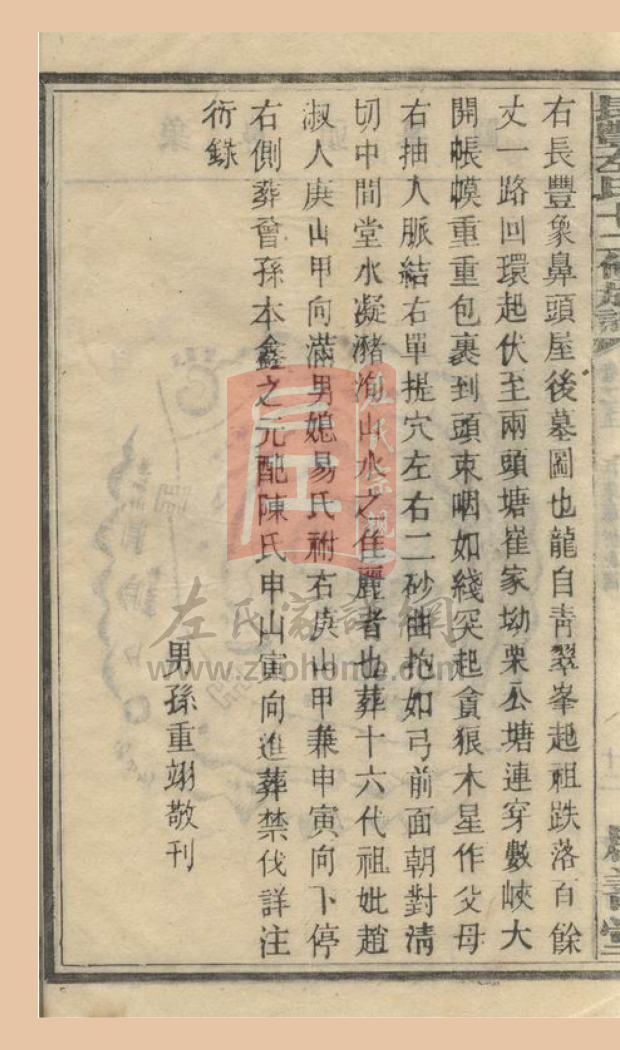 右長豐象鼻頭屋後墓圖也龍自靑翠峯起祖跌落百餘
丈一路回環起伏至兩頭塘崔家坳栗衣塘連穿數峽大
開帳幙重重包裹到頭束咽如綫突起貪狼木星作父母
右抽入脈結右單提穴左右二砂曲抱如弓前面朝對淸
切中間堂水凝豬洵山水之佳麗者也葬十六代祖妣趙
淑人庚山甲向滿男媳易氏祔右庚山甲兼申寅向下停
右側葬曾孫本鑫之元配陳氏申山寅向進葬禁伐詳注
衍錄
男孫重翊敬刊
左氏家譜網
www.zuohome.com